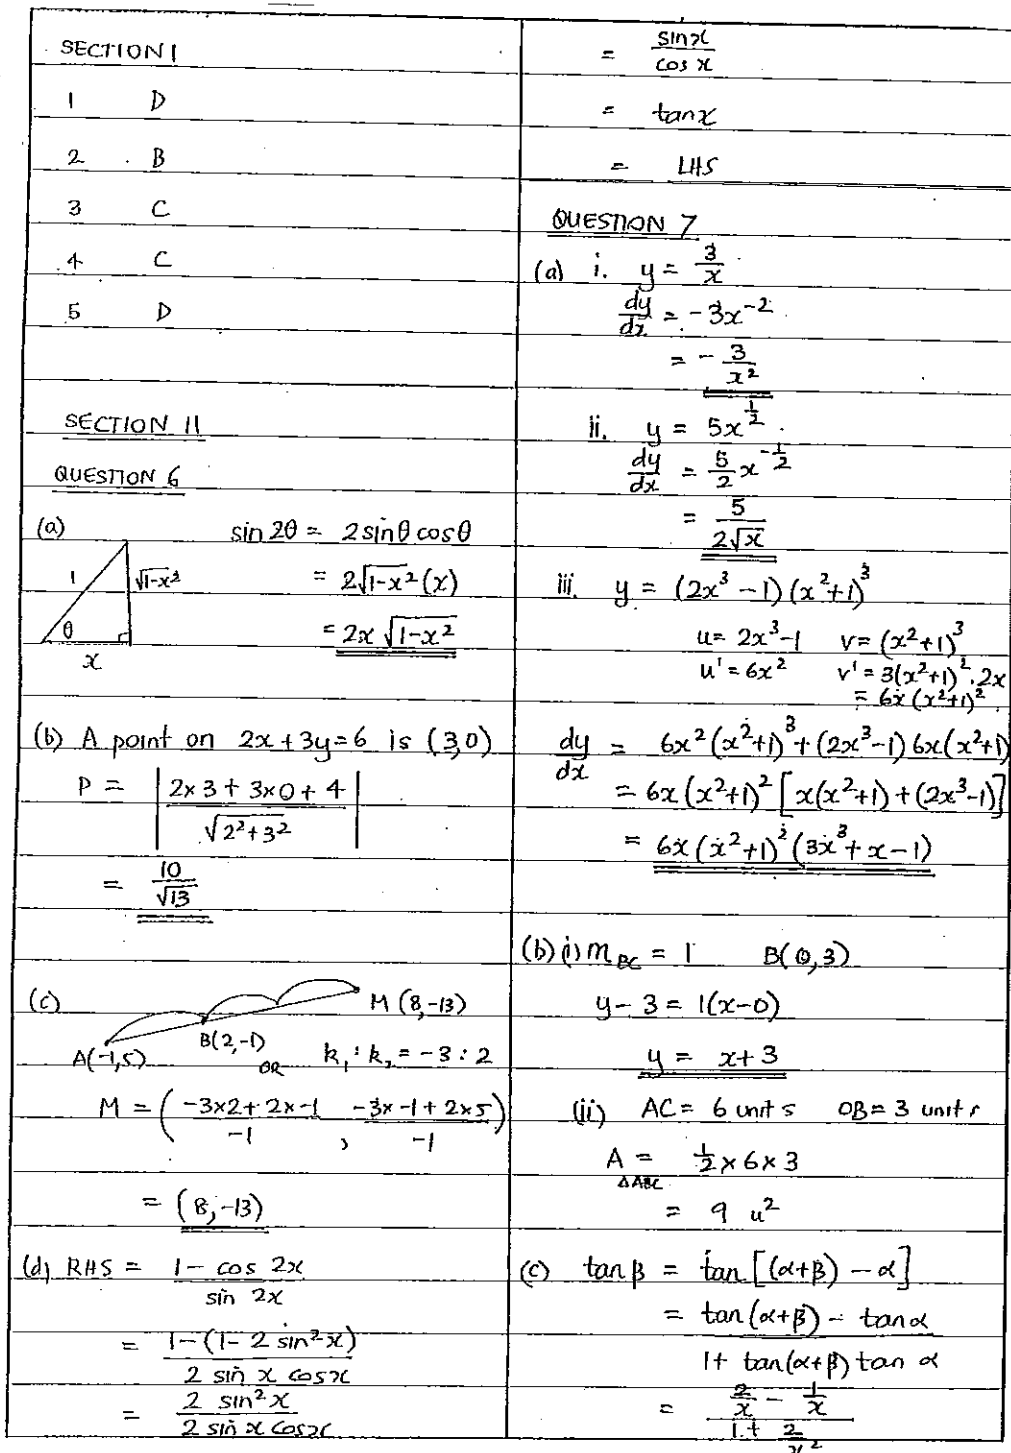 SECTION I
1 D
2 B
3 C
4 C
5 D
SECTION II
QUESTION 6
(a)
1
√(1-x²)
θ
x
sin 2θ = 2 sinθ cosθ
= 2√(1-x²) (x)
= 2x √(1-x²)
(b) A point on 2x+3y=6 is (3,0)
P = | (2×3 + 3×0 + 4) / √(2²+3²) |
= 10/√13
(c)
M (8,-13)
B(2,-1)
A(-1,5)
OR k₁ : k₂ = -3 : 2
M = ( (-3×2 + 2×-1)/-1 , (-3×-1 + 2×5)/-1 )
= (8,-13)
(d) RHS = (1 - cos 2x) / (sin 2x)
= (1-(1-2 sin²x)) / (2 sin x cosx)
= (2 sin²x) / (2 sin x cosx)
= sinx / cos x
= tanx
= LHS
QUESTION 7
(a) i. y = 3/x
dy/dx = -3x⁻²
= - 3/x²
ii. y = 5x^(1/2)
dy/dx = 5/2 x^(-1/2)
= 5/(2√x)
iii. y = (2x³ - 1)(x²+1)³
u = 2x³-1 v = (x²+1)³
u' = 6x² v' = 3(x²+1)².2x
= 6x(x²+1)².
dy/dx = 6x²(x²+1)³ + (2x³-1) 6x(x²+1)
= 6x(x²+1)² [x(x²+1) + (2x³-1)]
= 6x(x²+1)²(3x³ + x - 1)
(b) (i) m_BC = 1 B(0,3)
y-3 = 1(x-0)
y = x+3
(ii) AC = 6 units OB = 3 units
A_ΔABC = ½ × 6 × 3
= 9 u²
(c) tanβ = tan[(α+β) - α]
= (tan(α+β) - tanα) / (1+ tan(α+β) tan α)
= (2/x - 1/x) / (1 + 2/x²)